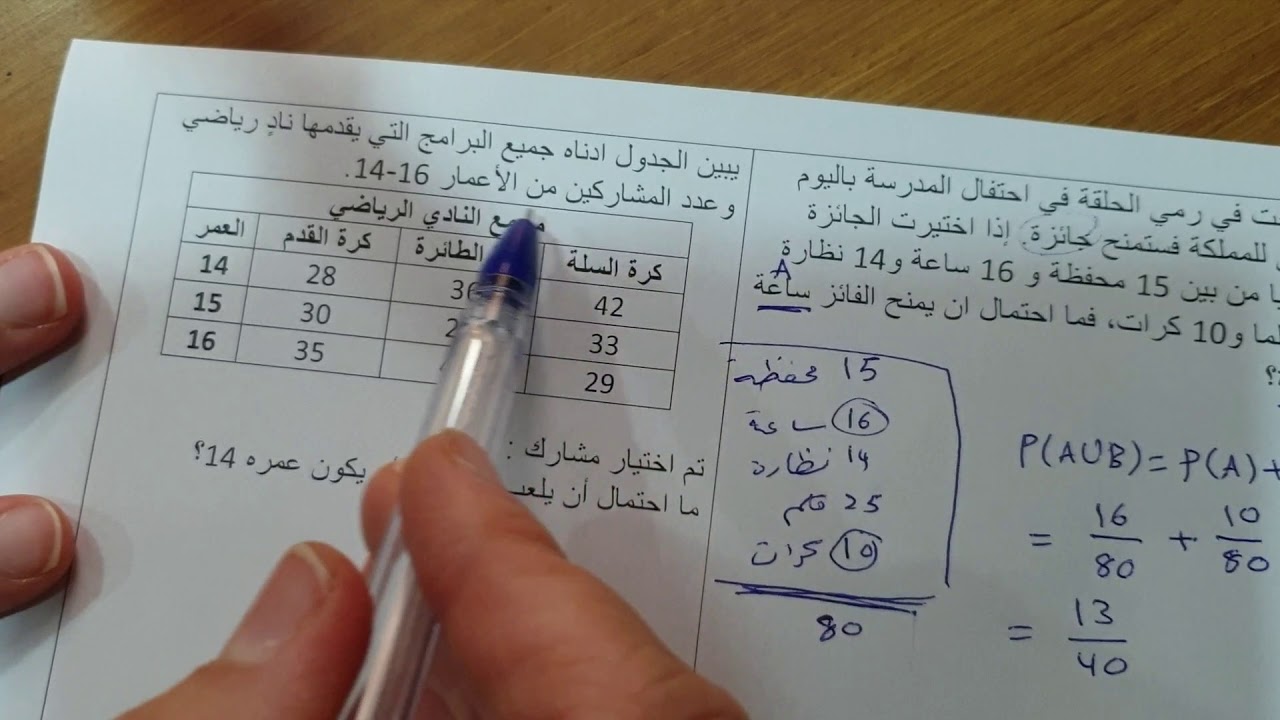 ت في رمي الحلقة في احتفال المدرسة باليوم
للمملكة فستمنح جائزة. إذا اختيرت الجائزة
من بين 15 محفظة و 16 ساعة و14 نظارة
و10 كرات، فما احتمال ان يمنح الفائز ساعة
A
15 محفظة
16 ساعة
14 نظارة
25 قلم
10 كرات
80
P(A∪B) = P(A) +
= 16/80 + 10/80
= 13/40
يبين الجدول ادناه جميع البرامج التي يقدمها نادٍ رياضي
وعدد المشاركين من الأعمار 16-14.
النادي الرياضي
العمر كرة القدم الطائرة كرة السلة
14 28 42
15 30 33
16 35 29
تم اختيار مشارك :
ما احتمال أن يلعب يكون عمره 14؟